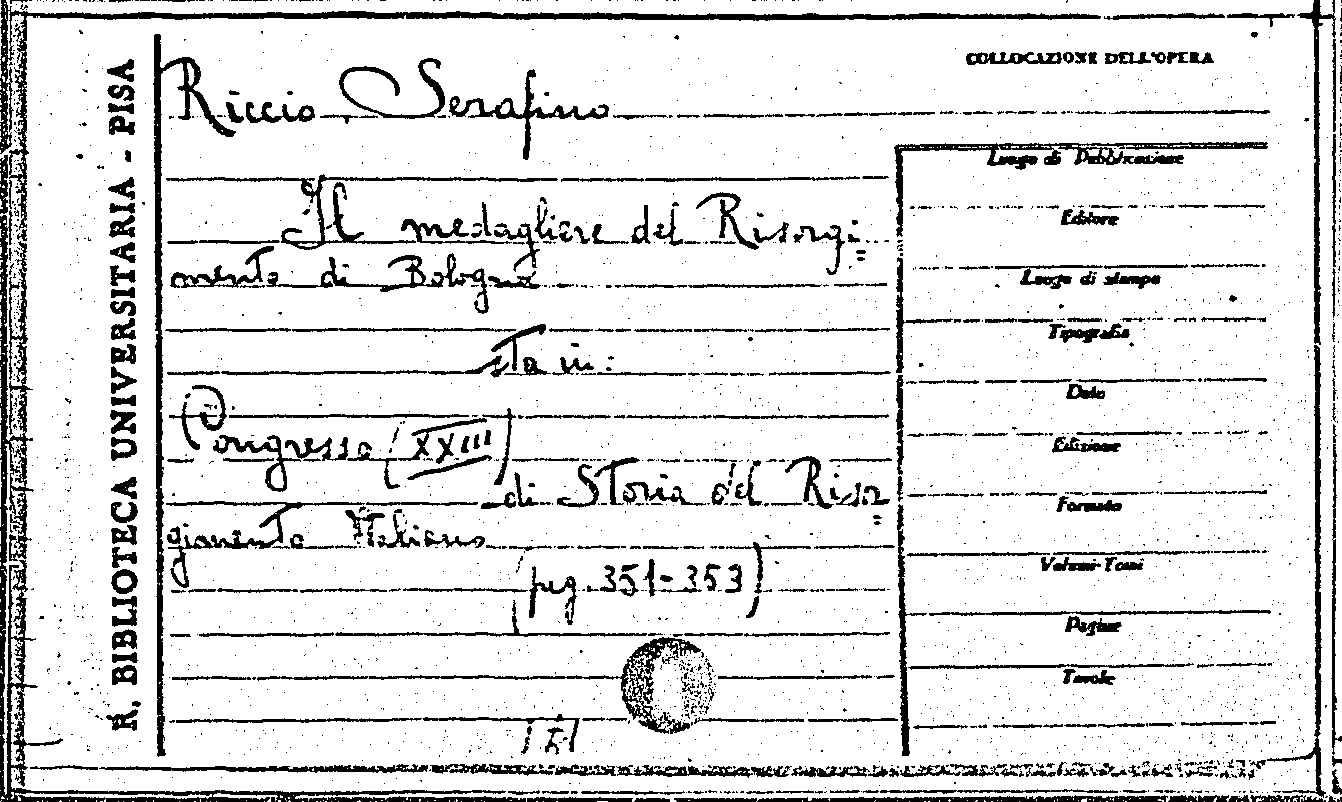 R. BIBLIOTECA UNIVERSITARIA - PISA
COLLOCAZIONE DELL'OPERA
Riccio, Serafino
Il medagliere del Risorgi=
mento di Bologna
sta in:
Congresso (XXIII)
di Storia del Risor=
gimento Italiano
(pag. 351-353)
Luogo di Pubblicazione
Editore
Luogo di stampa
Tipografia
Data
Edizione
Formato
Volumi-Tomi
Pagine
Tavole